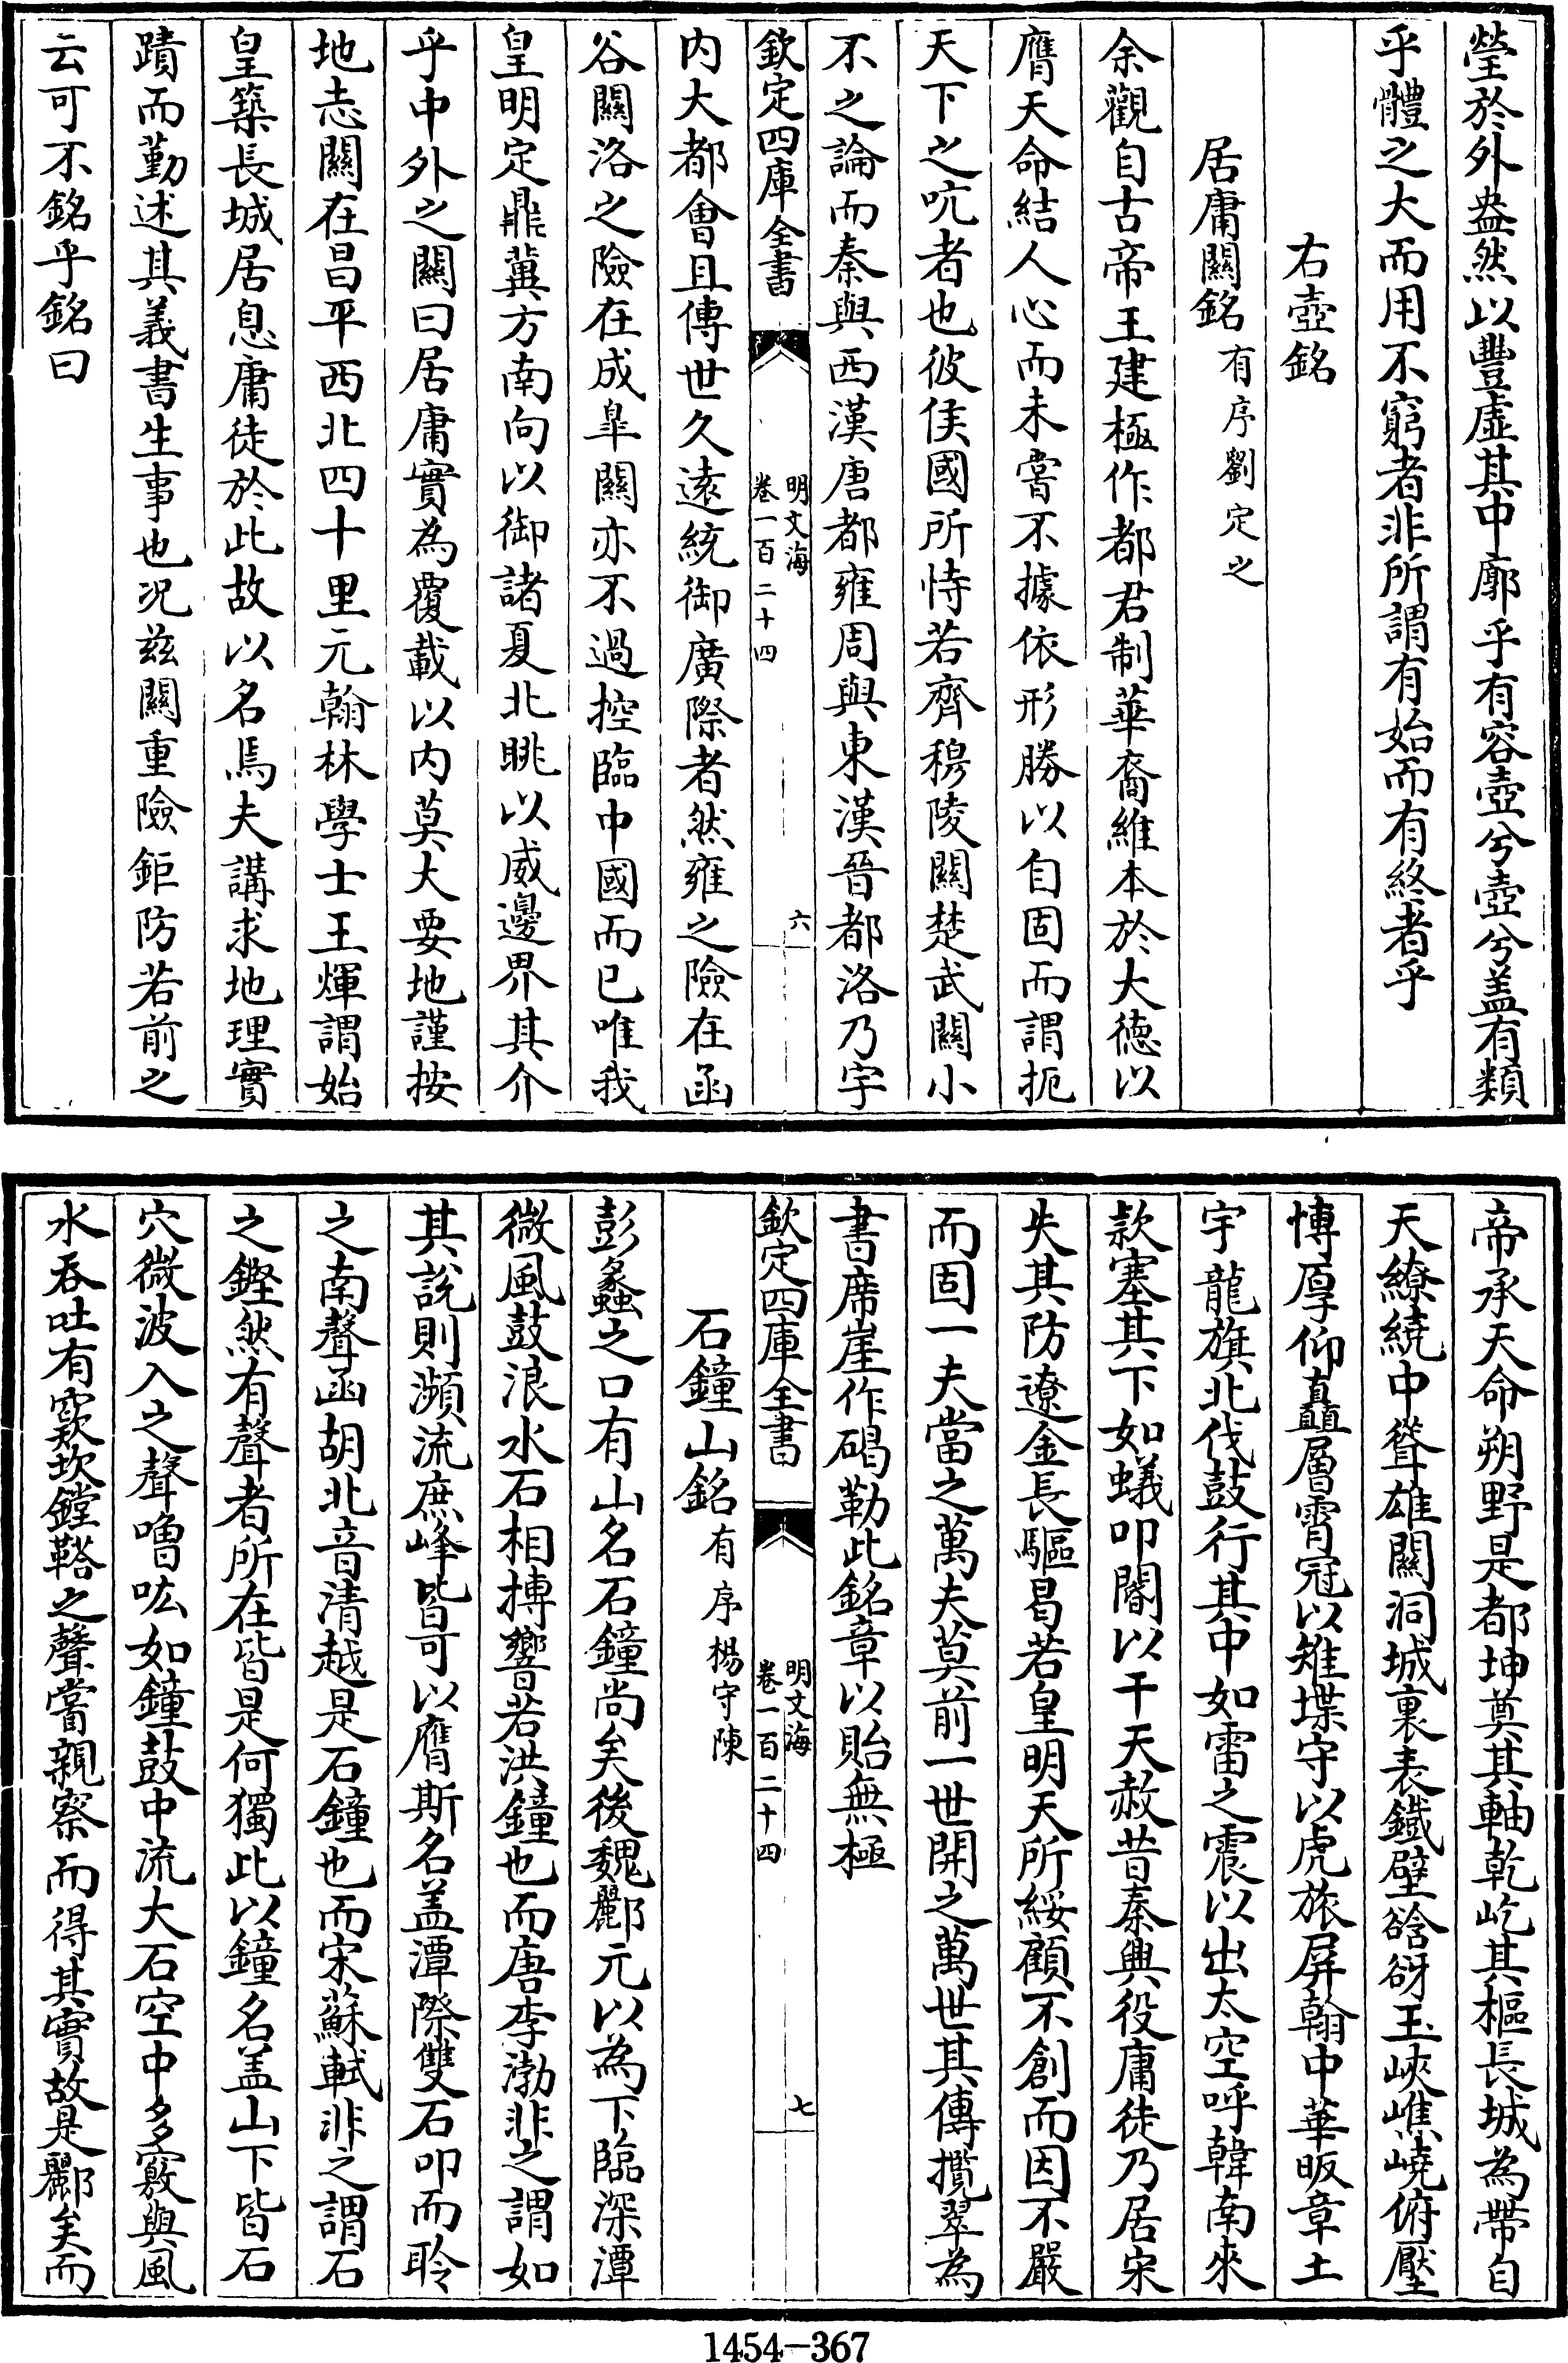 瑩於外盎然以豐虛其中廓乎有容壺兮壺兮盖有類
乎體之大而用不窮者非所謂有始而有終者乎
右壺銘
居庸關銘有序劉定之
余觀自古帝王建極作都君制華裔維本於大德以
膺天命結人心而未嘗不據依形勝以自固而謂扼
天下之吭者也彼侯國所恃若齊穆陵關楚武關小
不之論而秦與西漢唐都雍周與東漢晉都洛乃宇
欽定四庫全書
明文海
卷一百二十四
六
内大都會且傳世久遠統御廣際者然雍之險在函
谷關洛之險在成臯關亦不過控臨中國而已唯我
皇明定鼎冀方南向以御諸夏北眺以威邊界其介
乎中外之關曰居庸實為覆載以内莫大要地謹按
地志關在昌平西北四十里元翰林學士王煇謂始
皇築長城居息庸徒於此故以名焉夫講求地理實
蹟而勤述其義書生事也况兹關重險鉅防若前之
云可不銘乎銘曰
帝承天命朔野是都坤奠其軸乾屹其樞長城為帶自
天繚繞中聳雄關洞城裏表鐵壁谽谺玉峽嶕嶢俯壓
博厚仰矗層霄冠以雉堞守以虎旅屏翰中華昄章土
宇龍旗北伐鼓行其中如雷之震以出太空呼韓南來
款塞其下如蟻叩閽以干天赦昔秦興役庸徒乃居宋
失其防遼金長驅曷若皇明天所綏顧不創而因不嚴
而固一夫當之萬夫莫前一世開之萬世其傳攬翠為
書席崖作碣勒此銘章以貽無極
欽定四庫全書
明文海
卷一百二十四
七
石鐘山銘有序楊守陳
彭蠡之口有山名石鐘尚矣後魏酈元以為下臨深潭
微風鼓浪水石相搏響若洪鐘也而唐李渤非之謂如
其說則瀕流庶峰皆可以膺斯名盖潭際雙石叩而聆
之南聲函胡北音清越是石鐘也而宋蘇軾非之謂石
之鏗然有聲者所在皆是何獨此以鐘名盖山下皆石
穴微波入之聲噌吰如鐘鼓中流大石空中多竅與風
水吞吐有窾坎鏜鞳之聲嘗親察而得其實故是酈矣而
1454-367